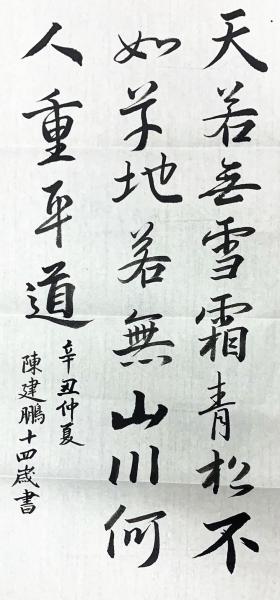 天若无雪霜青松不
如草地若無山川何
人重平道
辛丑仲夏
陳建鵬十四歲書